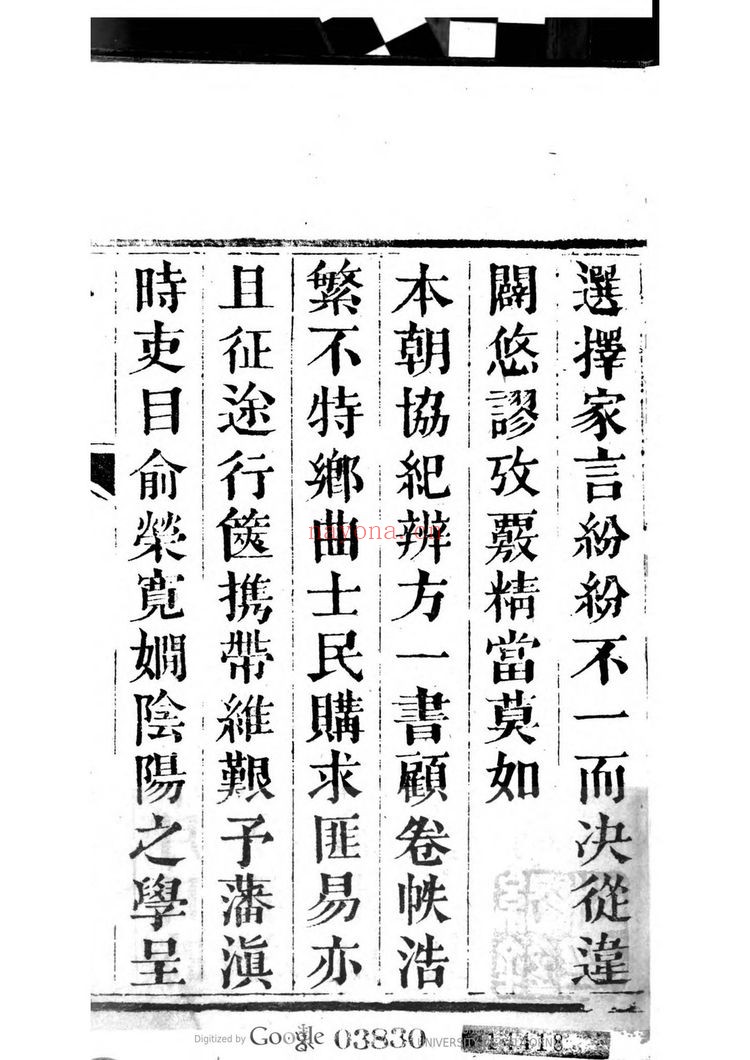 選擇家言紛紛不一而决從違
闢悠謬攷覈精當莫如
本朝協紀辨方一書顧卷帙浩
繁不特鄉曲士民購求匪易亦
且征途行篋携帶維艱予藩滇
時吏目俞榮寬嫺陰陽之學呈
navona.cn
Digitized by Google
03830
14418